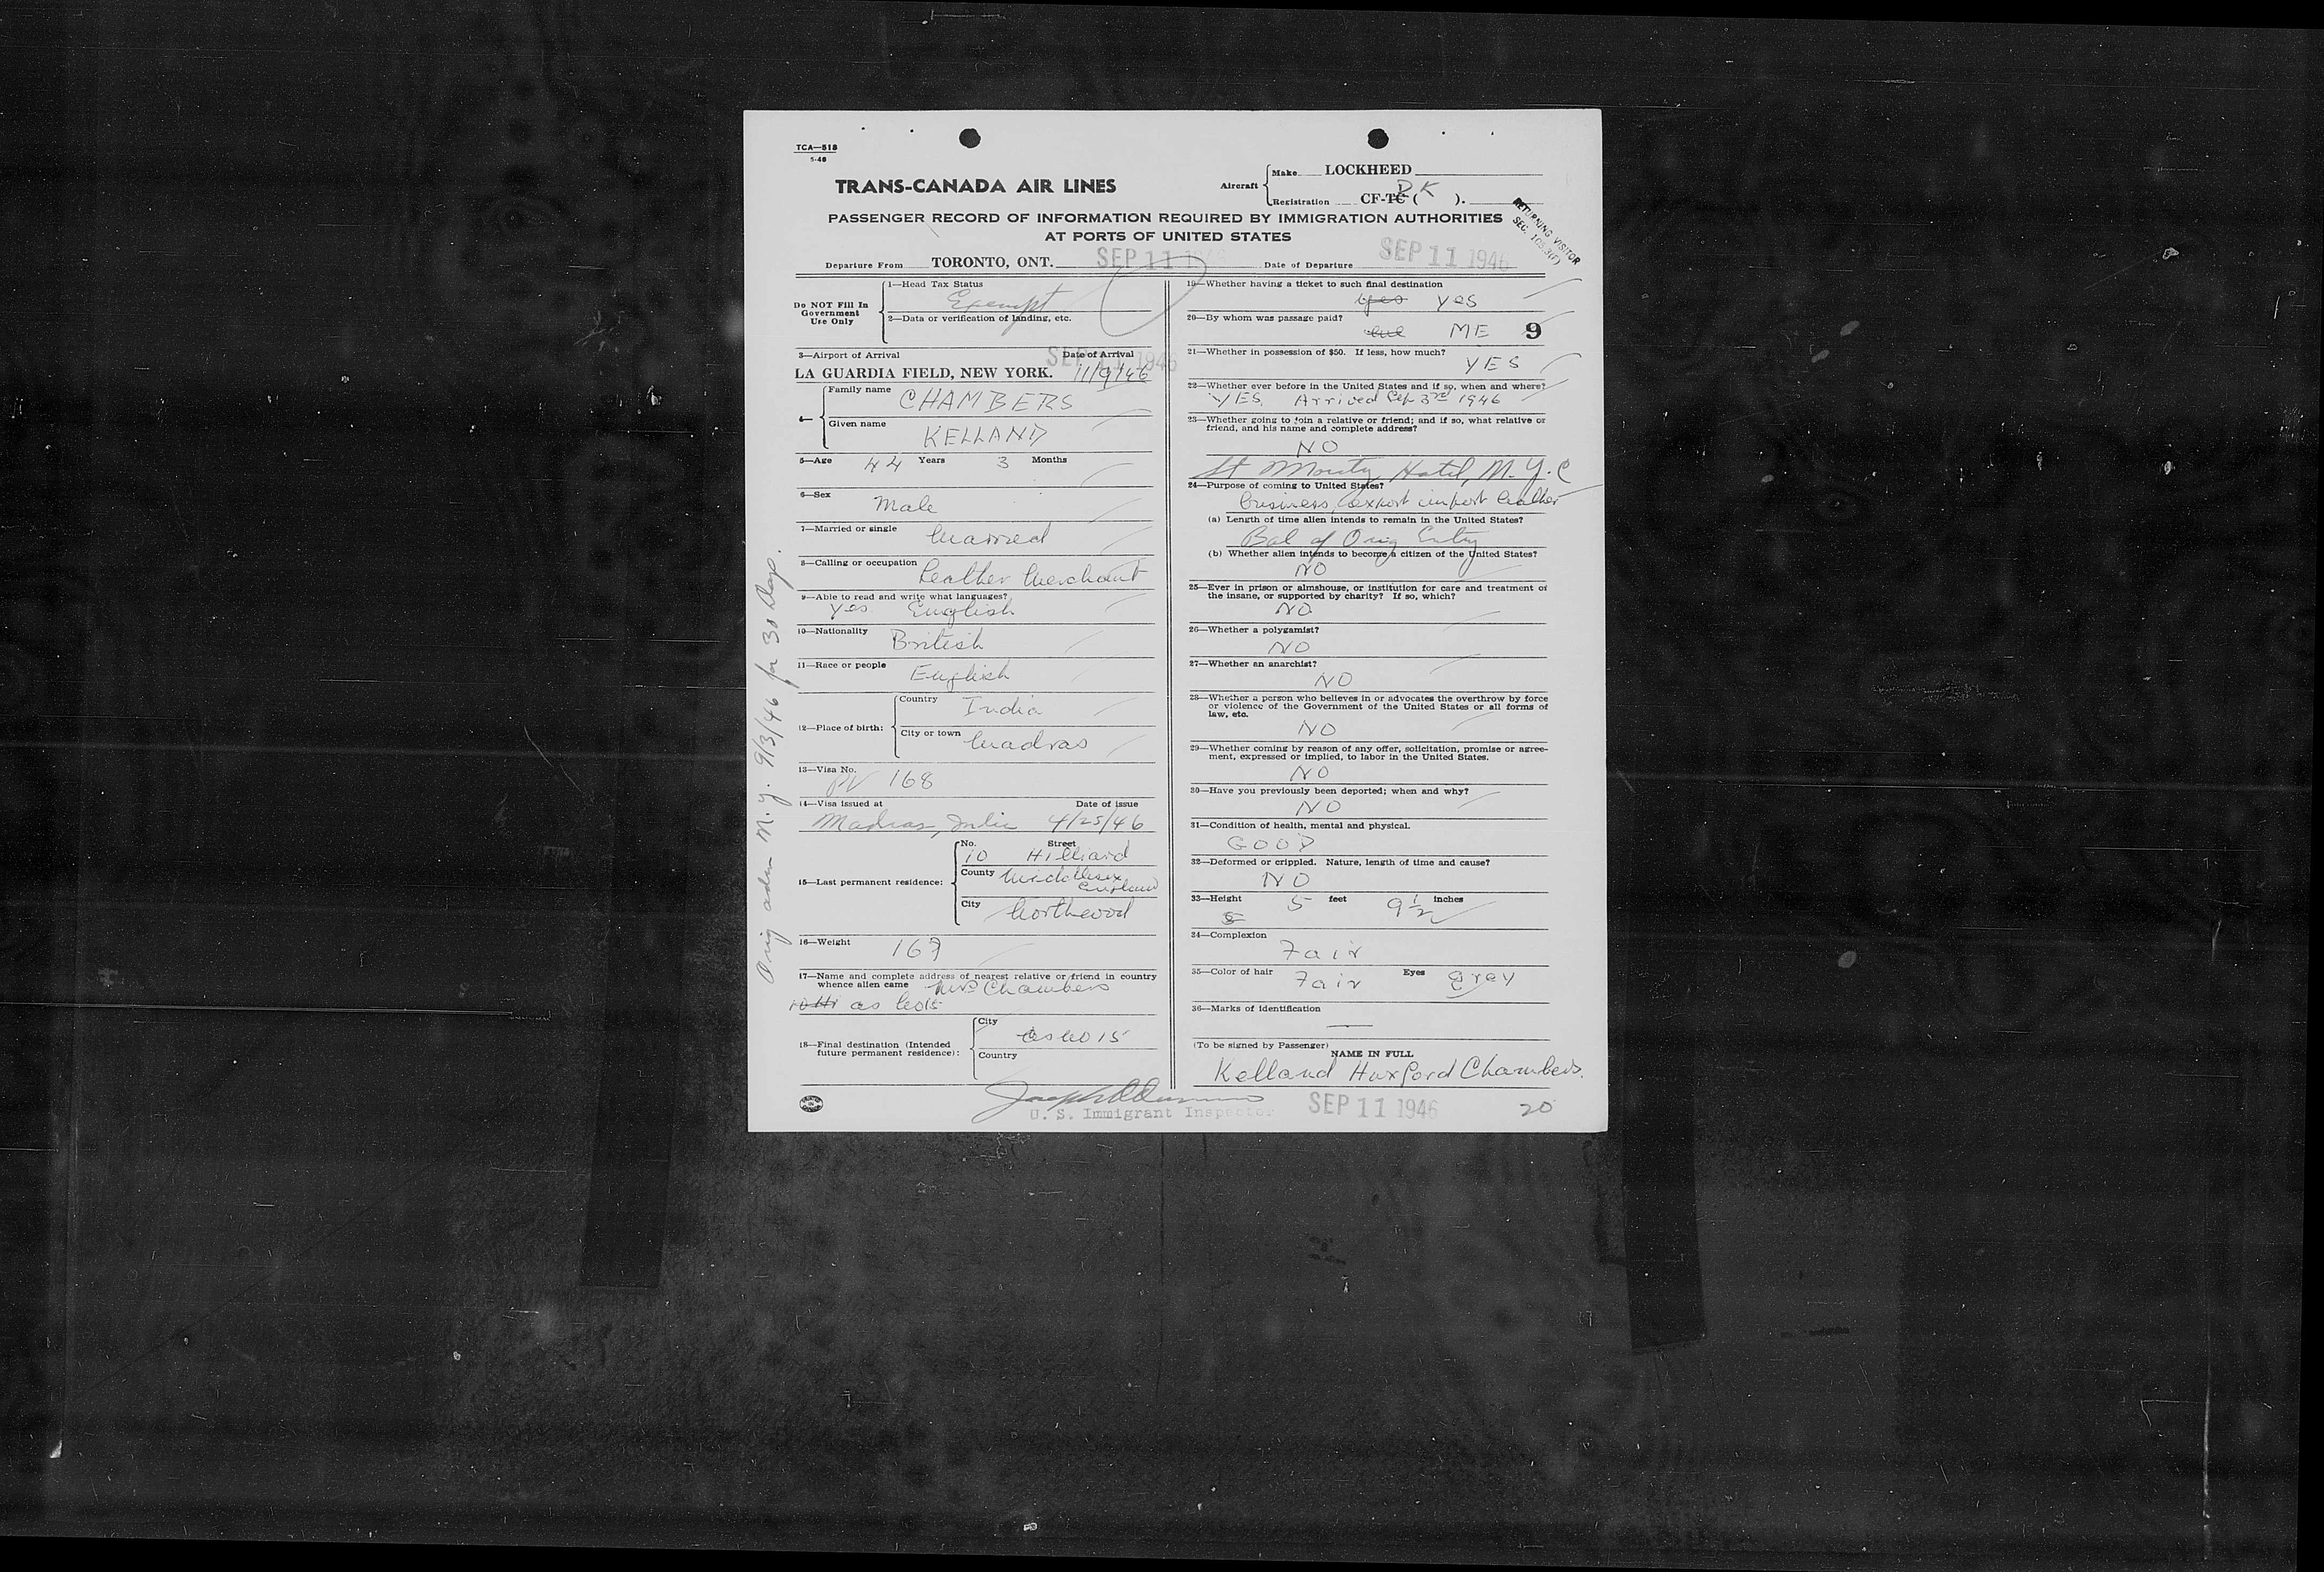 TCA—518
5-46
TRANS-CANADA AIR LINES
Aircraft
Make LOCKHEED
Registration CF-TC ( DK ).
PASSENGER RECORD OF INFORMATION REQUIRED BY IMMIGRATION AUTHORITIES
AT PORTS OF UNITED STATES
RETURNING VISITOR
Departure From TORONTO, ONT. SEP 11 1946 Date of Departure SEP 11 1946
Do NOT Fill In
Government
Use Only
1—Head Tax Status
Exempt
2—Data or verification of landing, etc.
3—Airport of Arrival Date of Arrival
SEP 11 1946
LA GUARDIA FIELD, NEW YORK. 11/9/46
4—
Family name CHAMBERS
Given name KELLAND
5—Age 44 Years 3 Months
6—Sex Male
7—Married or single Married
8—Calling or occupation Leather Merchant
9—Able to read and write what languages?
Yes English
10—Nationality British
11—Race or people English
12—Place of birth:
Country India
City or town Madras
13—Visa No.
PV 168
14—Visa issued at Date of issue
Madras, India 4/25/46
15—Last permanent residence:
No. Street
10 Hilliard
County Middlesex
England
City Northwood
16—Weight 167
17—Name and complete address of nearest relative or friend in country
whence alien came Mrs Chambers
as No15
18—Final destination (Intended
future permanent residence):
City as No 15
Country
19—Whether having a ticket to such final destination
yes yes
20—By whom was passage paid?
me ME 9
21—Whether in possession of $50. If less, how much?
YES
22—Whether ever before in the United States and if so, when and where?
YES. Arrived Sep 3rd 1946
23—Whether going to join a relative or friend; and if so, what relative or
friend, and his name and complete address?
NO
St Moritz Hotel, N.Y.C
24—Purpose of coming to United States?
business, export import leather
(a) Length of time alien intends to remain in the United States?
Bal of Orig Entry
(b) Whether alien intends to become a citizen of the United States?
NO
25—Ever in prison or almshouse, or institution for care and treatment of
the insane, or supported by charity? If so, which?
NO
26—Whether a polygamist?
NO
27—Whether an anarchist?
NO
28—Whether a person who believes in or advocates the overthrow by force
or violence of the Government of the United States or all forms of
law, etc.
NO
29—Whether coming by reason of any offer, solicitation, promise or agree-
ment, expressed or implied, to labor in the United States.
NO
30—Have you previously been deported; when and why?
NO
31—Condition of health, mental and physical.
GOOD
32—Deformed or crippled. Nature, length of time and cause?
NO
33—Height 5 feet 9½ inches
34—Complexion
Fair
35—Color of hair Fair Eyes grey
36—Marks of identification
(To be signed by Passenger)
NAME IN FULL
Kelland Huxford Chambers.
U. S. Immigrant Inspector SEP 11 1946 20
Orig adm N.Y. 9/3/46 for 30 Days.